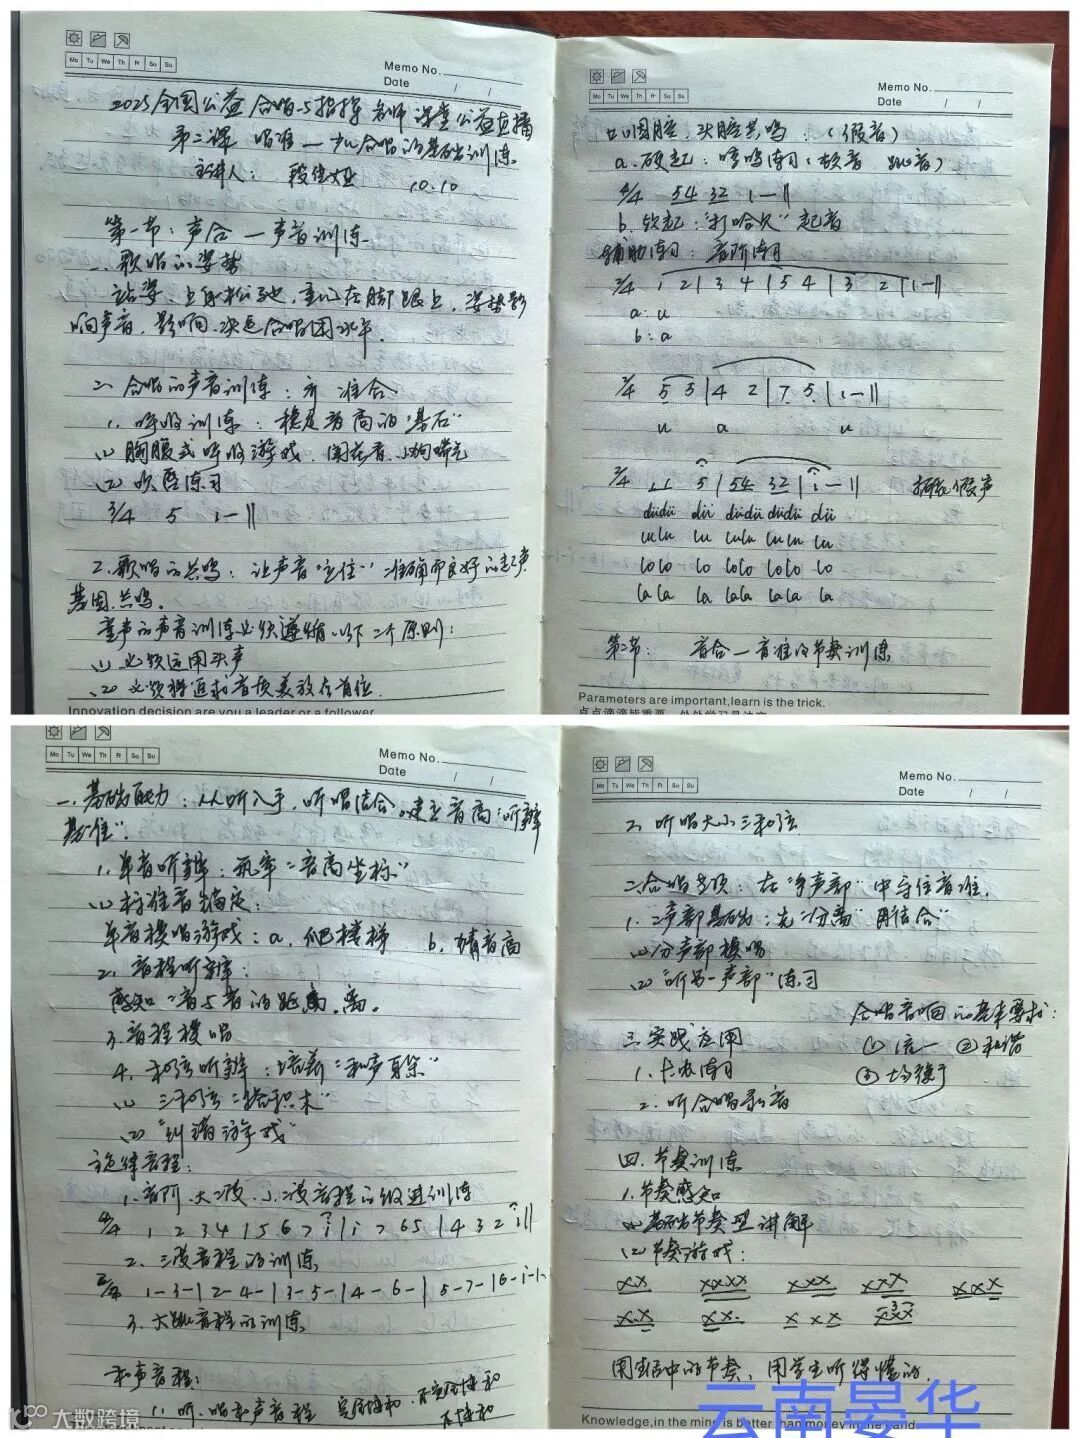 Mo Tu We Th Fr Sa Su
Memo No.
Date / /
2025全国公益合唱与指挥名师课堂公益直播
第二课 唱准—少儿合唱的基础训练
主讲人: 段佳娅 10.10
第一节: 声合—声音训练
一、歌唱的姿势
站姿,上身松弛,重心在脚跟上,姿势影
响声音,影响、决定合唱团水平.
二、合唱的声音训练: 齐 准 合
1. 呼吸训练: 稳定音高的"基石"
(1) 胸腹式呼吸游戏、闻花香、小狗喘气
(2) 吹唇练习
3/4 5 i — ||
2. 歌唱的共鸣: 让声音"立住"; 准确而良好的起声
基因、共鸣.
童声的声音训练必须遵循以下二个原则:
(1) 必须运用头声
(2) 必须将追求音质美放在首位.
Innovation decision are you a leader or a follower
Mo Tu We Th Fr Sa Su
Memo No.
Date / /
口咽腔、头腔共鸣 (假音)
a. 硬起: 哼鸣练习 (软音 跳音)
2/4 54 32 1 — ||
b. 软起: "打哈欠" 起音
辅助练习: 音阶练习
2/4 1 2 | 3 4 | 5 4 | 3 2 | 1 — ||
a: u
b: a
2/4 5 3 | 4 2 | 7 5 | 1 — ||
u a u
2/4 1 1 5 | 54 32 | i — ||
假声
düdü dü düdü düdü dü
lulu lu lulu lulu lu
lolo lo lolo lolo lo
lala la lala lala la
第二节: 音合—音准与节奏训练
Parameters are important,learn is the trick.
Mo Tu We Th Fr Sa Su
Memo No.
Date / /
一、基础能力: 从听入手, 听唱结合, 建立音高"听辨
基准".
1. 单音听辨: 筑牢"音高坐标"
(1) 标准音锚定:
单音模唱游戏: a. 爬楼梯 b. 猜音高
2. 音程听辨:
感知"音与音的距离".
3. 音程模唱
4. 和弦听辨: 培养"和声耳朵"
(1) 三和弦"搭积木"
(2) "纠错游戏"
旋律音程:
1. 音阶、大二度、小二度音程的级进训练
4/4 1 2 3 4 | 5 6 7 i | i 7 6 5 | 4 3 2 i ||
2. 三度音程的训练
2/4 1-3-| 2-4-| 3-5-| 4-6-| 5-7-| 6-i-|
3. 大跳音程的训练
和声音程:
1. 听、唱和声音程 完全协和、不完全协和
不协和
Mo Tu We Th Fr Sa Su
Memo No.
Date / /
2. 听唱大小三和弦.
二、合唱专项: 在"多声部"中守住音准.
1. 二声部基础: 先"分离"再"结合"
(1) 分声部模唱
(2) "听另一声部"练习
合唱音响的基本要求:
三. 实践应用
① 统一 ② 和谐
1. 卡农练习
③ 均衡
2. 听合唱录音
四. 节奏训练
1. 节奏感知
(1) 基础节奏型讲解
(2) 节奏游戏:
X.X XXXX XXX XXX XXX
X.X XX. X X X XXX
用生活中的节奏, 用学生听得懂的.
Knowledge,in the mind is better than money in the hand.
云南晏华
大数跨境